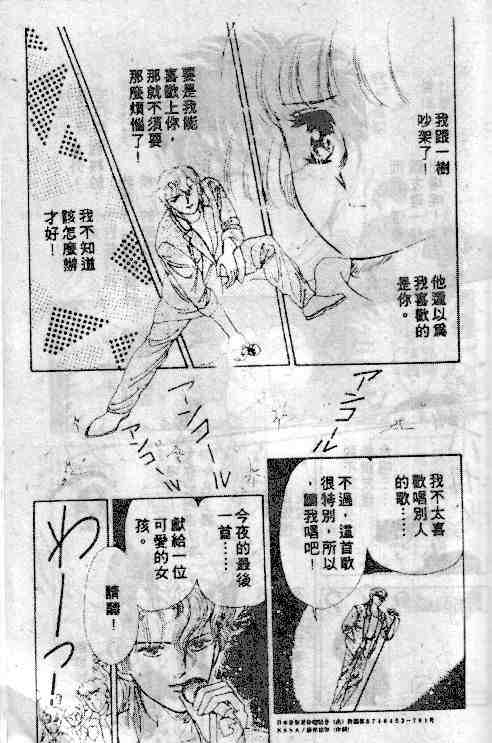 我跟一樹
吵架了！
他還以為
我喜歡的
是你。
要是我能
喜歡上你，
那就不須要
那麼煩惱了！
我不知道
該怎麼辦
才好！
アンコール
アンコール
アンコール
我不太喜
歡唱別人
的歌……
不過，這首歌
很特別，所以
，聽我唱吧！
今夜的最後
一首……
獻給一位
可愛的女
孩。
請聽！
わーっ！